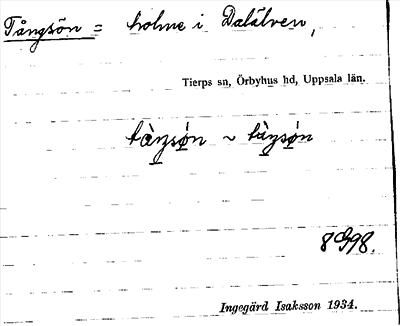 Tångsön = holme i Dalälven,
Tierps sn, Örbyhus hd, Uppsala län.
tàŋsón ~ tàŋsón
Ingegärd Isaksson 1934.